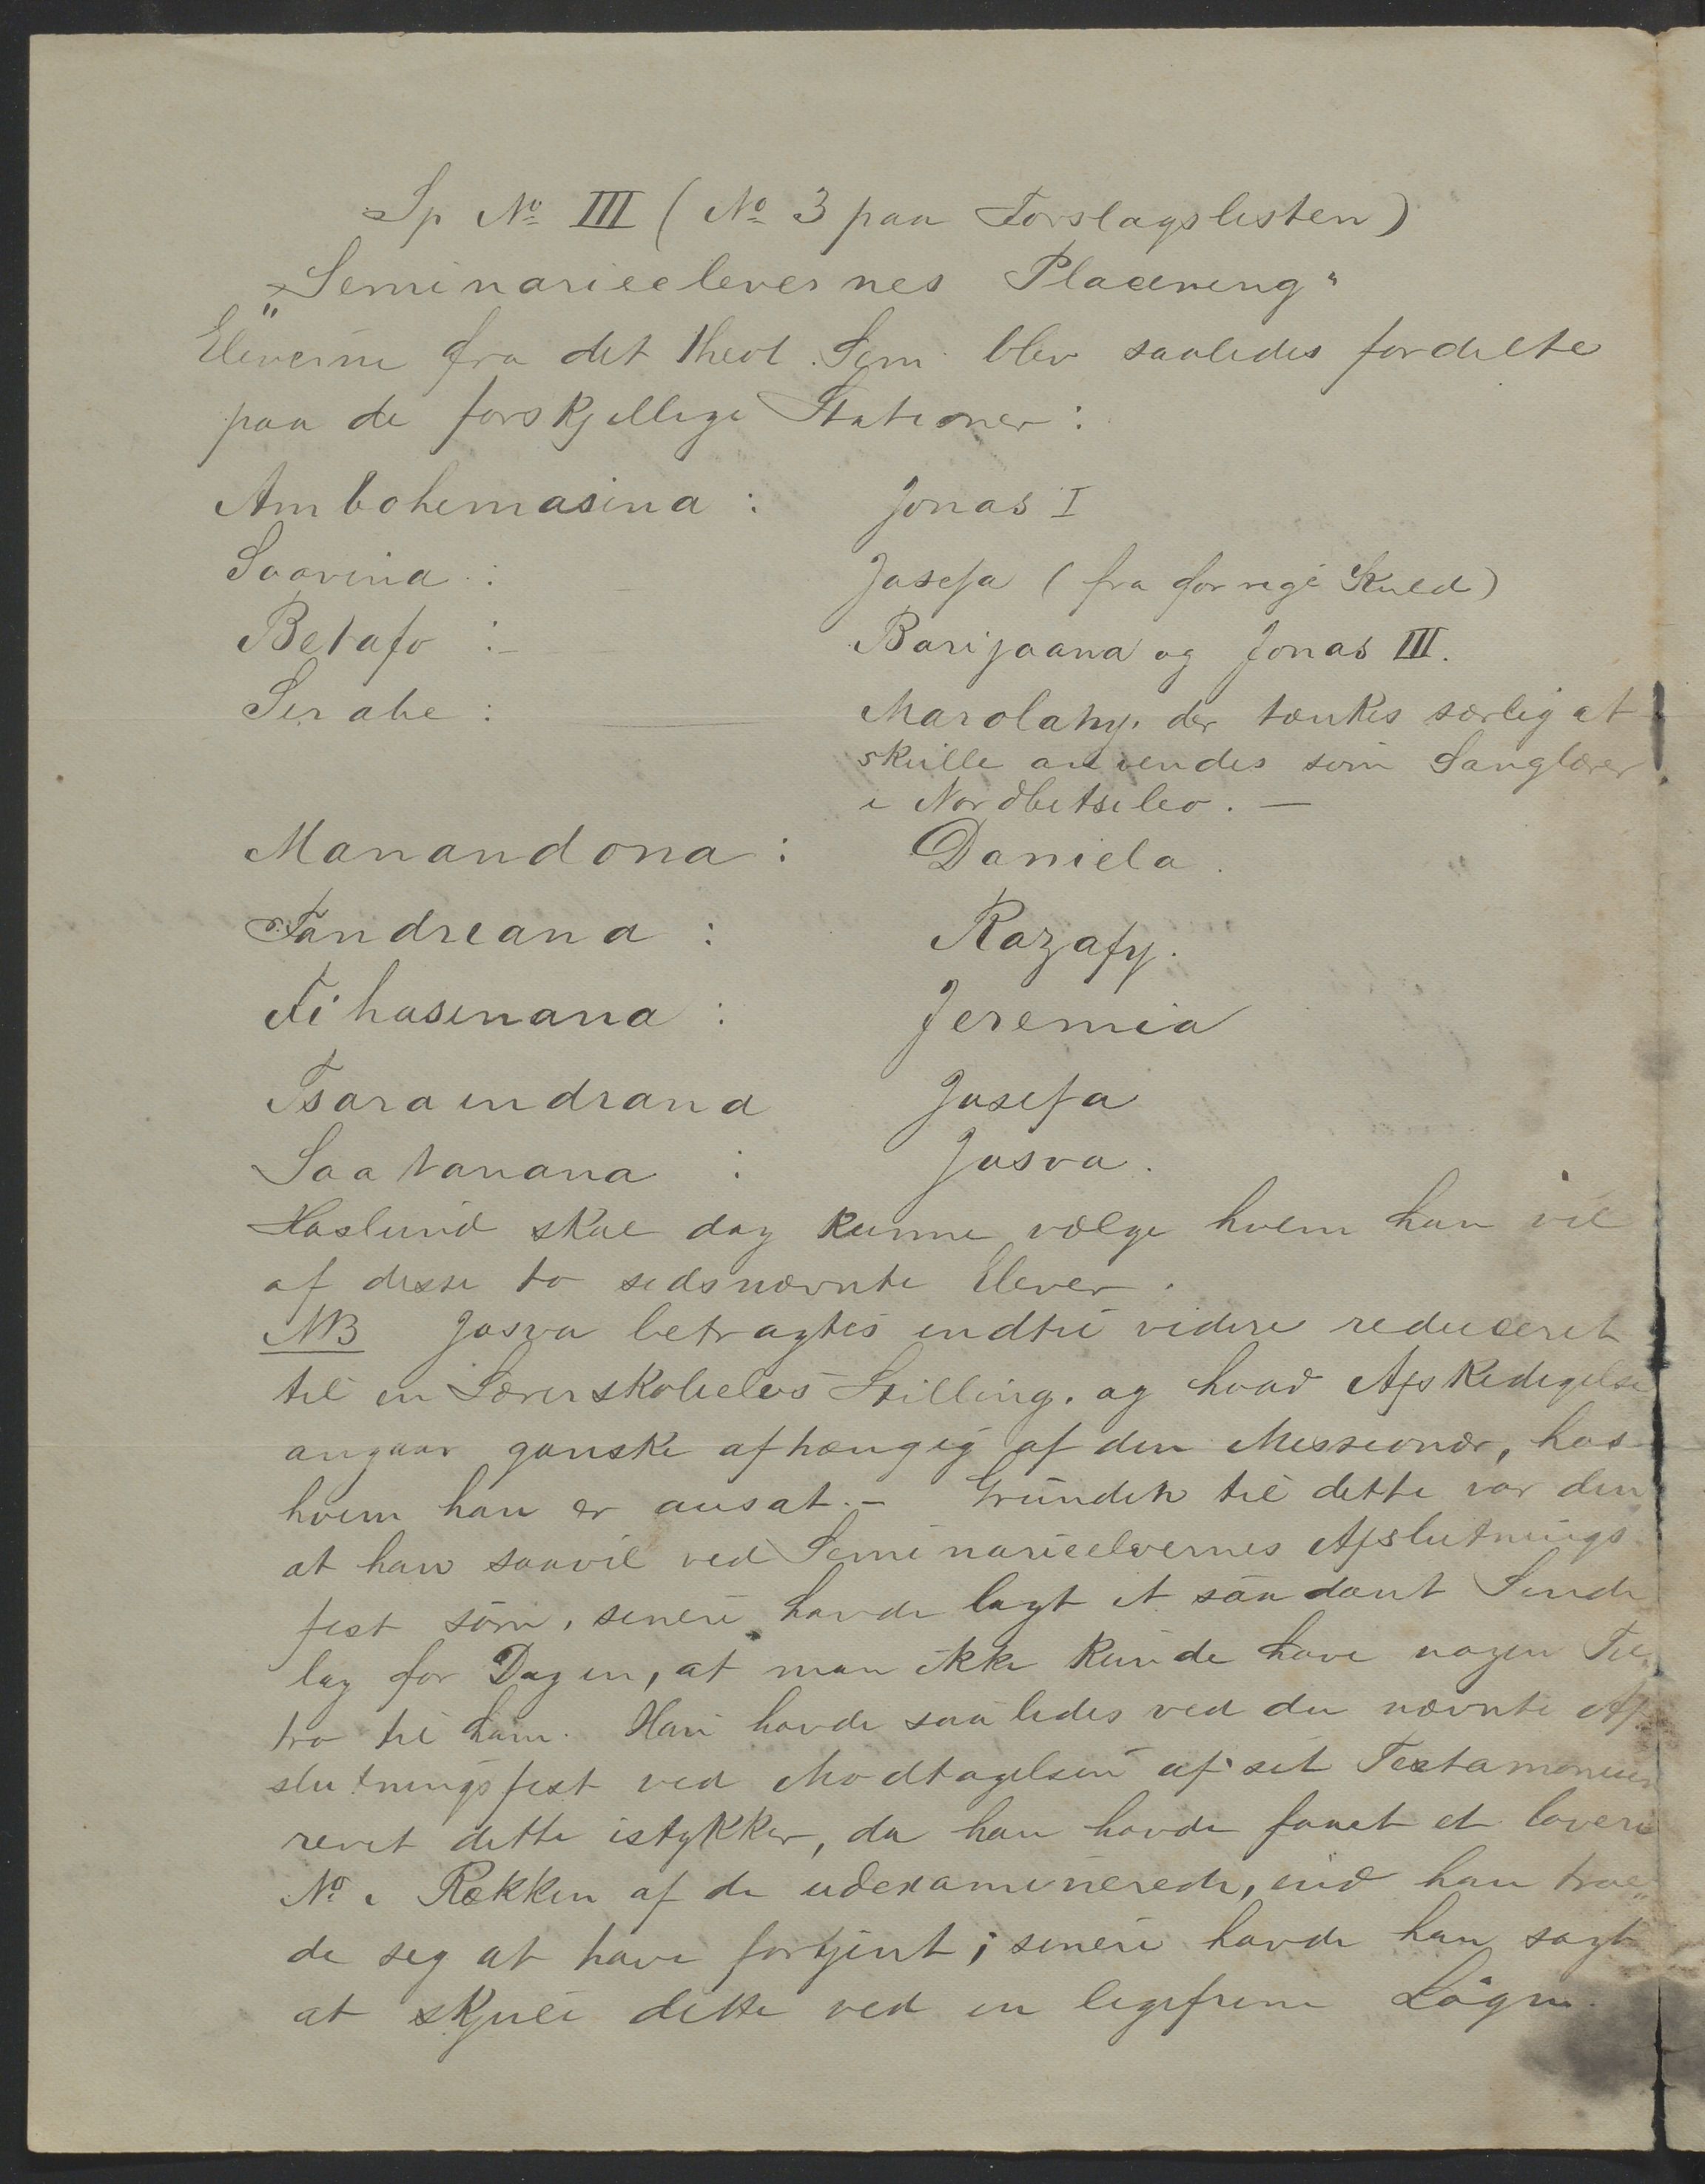 Sp № III (№ 3 paa Forslagslisten)
„Seminarieelevernes Placering"
Eleverne fra det theol. Sem. blev saaledes fordelte
paa de forskjellige Stationer:
Ambohimasina: Jonas I
Soavina: Josefa (fra forrige Kuld)
Betafo: Barijaona og Jonas III.
Sirabe: Marolahy, der tænkes særlig at
skulle anvendes som Sanglærer
i Nordbetsileo. —
Manandona: Daniela.
Fandreana: Razafy.
Fihasinana: Jeremia
Tsaraindrana Josefa
Soatanana: Josva.
Haslund skal dog kunne vælge hvem han vil
af disse to sidsnævnte Elever.
NB Josva betragtes indtil videre reduceret
til en Lærerskoleelevs Stilling, og hvad Afskedigelse
angaar ganske afhængig af den Missionær, hos
hvem han er ansat. – Grunden til dette var den
at han saavel ved Seminarieelevernes Afslutnings
fest som senere havde lagt et saadant Sinde
lag for Dagen, at man ikke kunde have nogen Til
tro til ham. Han havde saaledes ved den nævnte Af
slutningsfest ved Modtagelsen af sit Testamonium
revet dette istykker, da han havde faaet et lavere
№ i Rækken af de udexaminerede, end han troe
de sig at have fortjent; senere havde han søgt
at skjule dette ved en ligefrem Løgn.